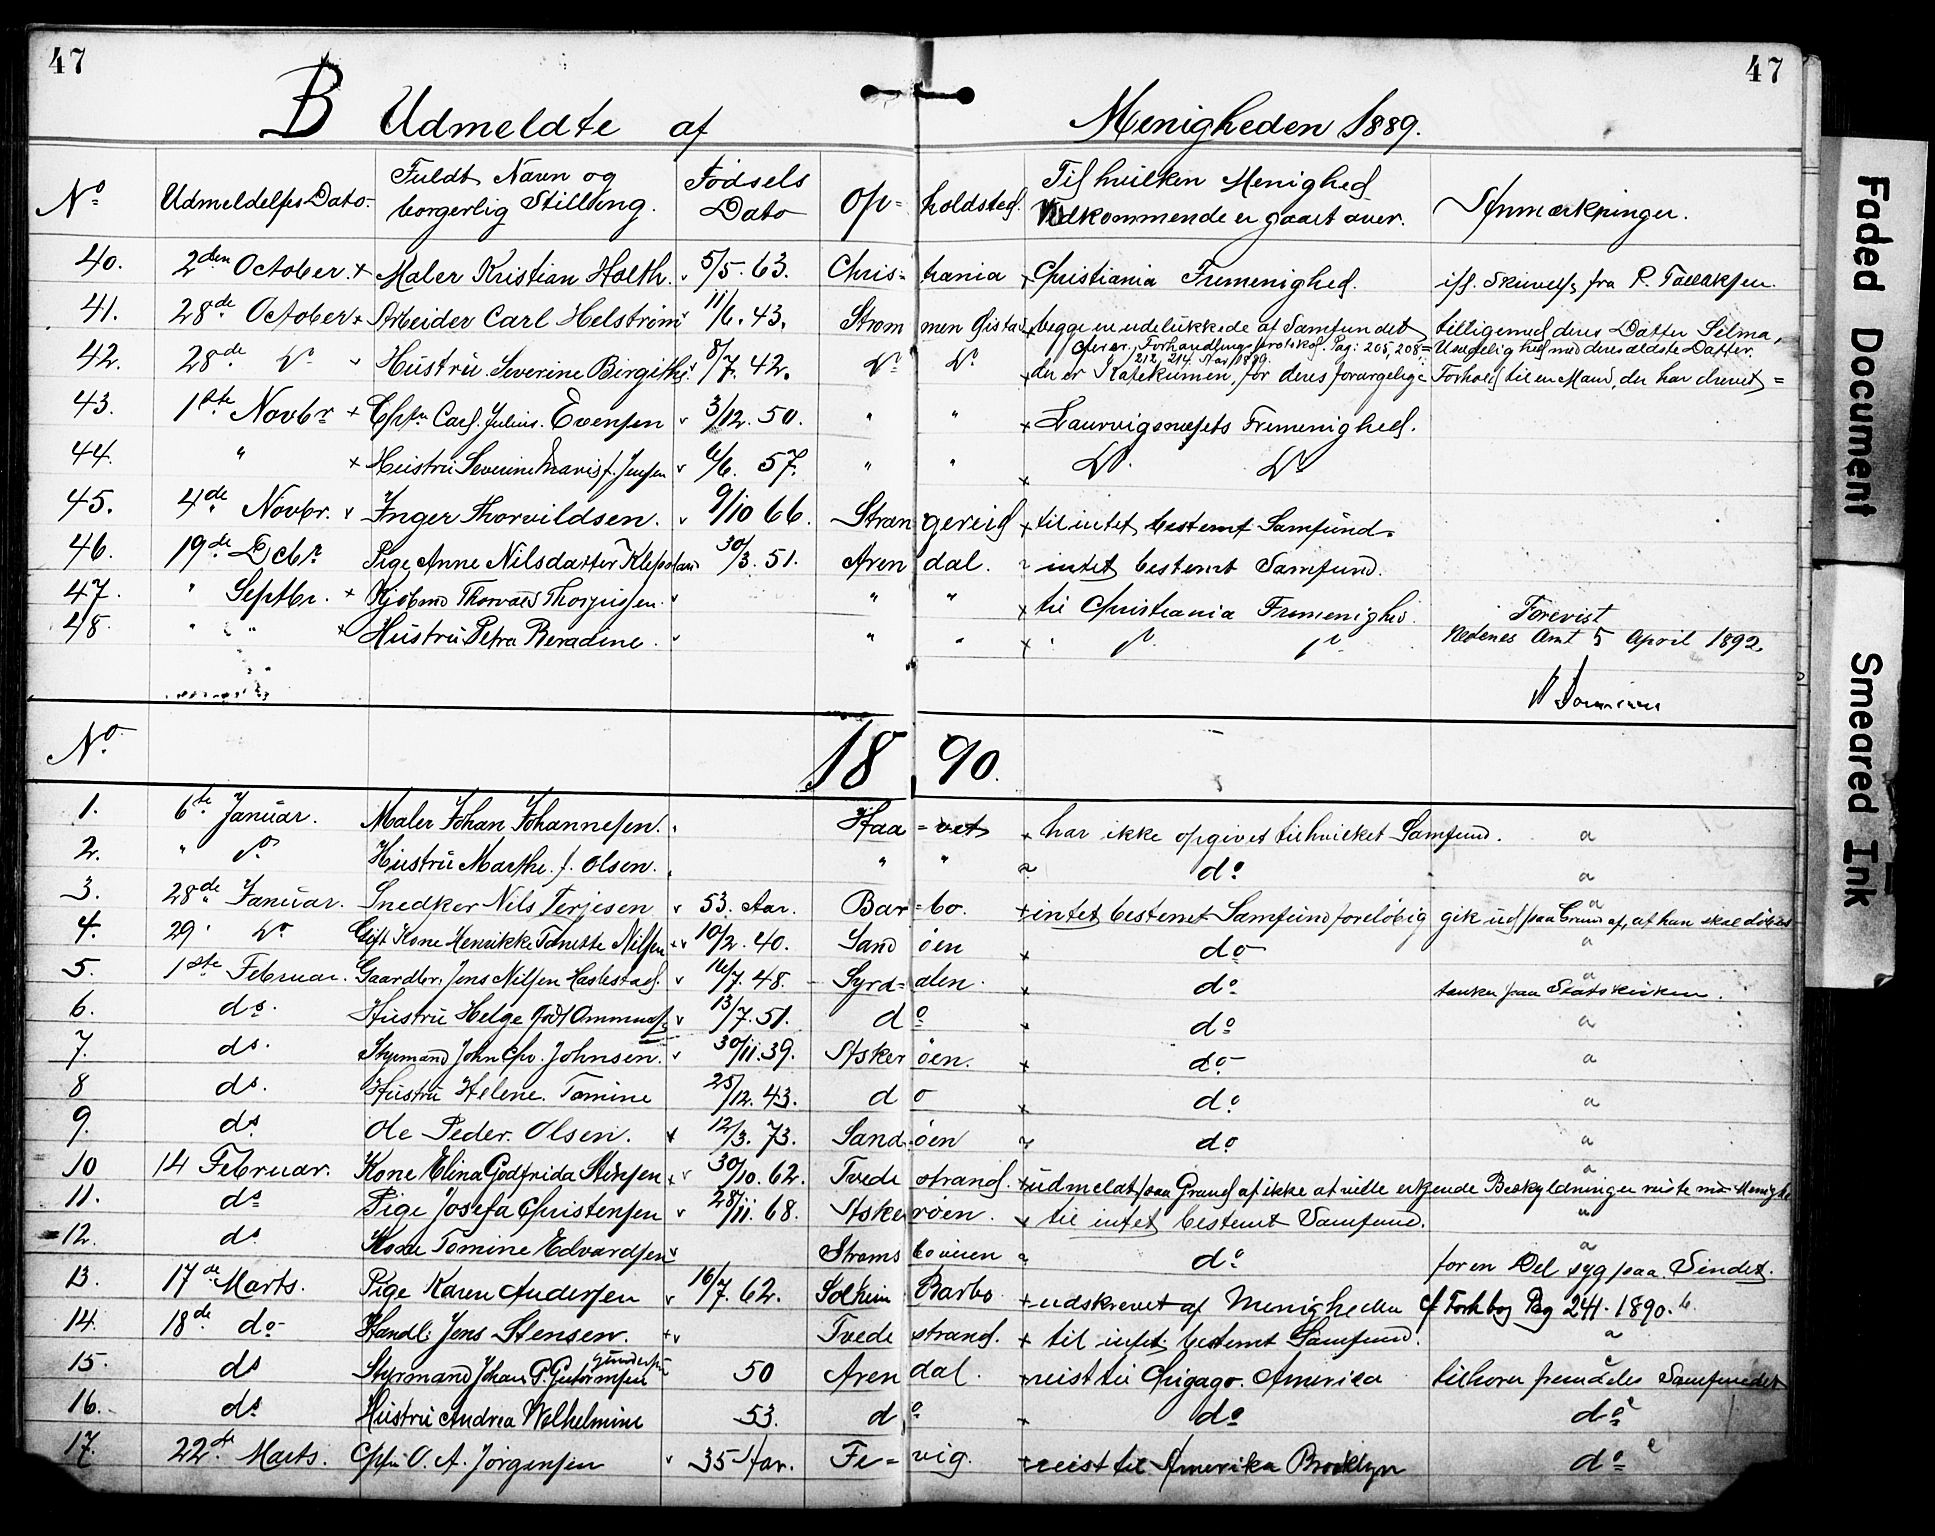 47
47
B Udmeldte af Menigheden 1889.
No Udmeldelses Dato. Fuldt Navn og borgerlig Stilling. Fødsels Dato Op- holdsted. Til hvilken Menighed Vedkommende er gaaet over. Anmærkninger.
40. 2den October. Maler Kristian Holth. 5/5. 63. Chris- tiania Christiania Frimenighed. fra P.
41. 28de October Arbeider Carl Helstrøm 11/6. 43. Strøm men begge ere udelukkede af Samfundet tilligemed deres Datter Selma,
Forhandlingsprotokol. Pag: 205, 208= med deres ældste Datter.
212, 214, Aar 1889.
42. 28de do Hustru Severine Birgithe 8/7. 42. do do der er Katekumen, for deres forargelige Forhold til en Mand, der har drevet =
43. 1ste Novbr Carl Julius. Evensen 3/12. 50. " " Laurvigs Frimenighed.
44. " Hustru Severine Marie f. Jensen 6/6. 57. " " do do
45. 4de Novbr. Inger Thorvildsen. 9/10 66. Stran gereid til intet bestemt Samfund.
46. 19de Decbr Pige Anne Nilsdatter 30/3. 51. Aren dal. intet bestemt Samfund.
47. " Septbr. Kjøbmd Thorvald " " til Christiania Frimenighed.
48. " " Hustru Petra Beradine. " " do do
Forevist
Nedenes Amt 5 April 1892.
No 1890.
1. 6te Januar. Maler Johan Johannesen. Haa = vet har ikke opgivet til hvilket Samfund. a
2. " do Hustru Marthe. f. Olsen. " " do a
3. 28de Januar. Snedker Nils Terjesen 53. Aar. Bar = bo. intet bestemt Samfund foreløbig gik ud paa Grund af, at han skal døbes a
4. 29 do Gift Kone Henrikke Tonette Nilsen 10/2. 40. Sand øen do a
5. 1ste Februar. Gaardbr. Jens Nilsen Hastestad. 16/7. 48. Syrd= alen. do a
tænker paa Statskirken.
6. do. Hustru Helge 13/7. 51. do do a
7. do. Styrmand John Chr. Johnsen. 30/11. 39. Asker øen. do a
8 do. Hustru Helene. Tomine 25/12. 43. do do a
9. do Ole Peder. Olsen. 12/3. 73. Sand øen do a
10 14 Februar. Kone Elina Godfrida Stensen 30/10. 62. Tvede strand. udmeldt paa Grund af ikke at ville erkjende Beskyldninger a
11. do Pige Josefa Christensen 28/11. 68. Aske røen. til intet bestemt Samfund. "
12. do Kone Tomine Edvardsen Strøms boveien do a
for en Del syg paa Sindet.
13. 17de Marts. Pige Karen Andersen 16/7. 62. Solheim Barbo udskrevet af Menigheden cf Forh bog Pag 241. 1890. b.
14. 18de do Handl. Jens Stensen. Tvede strand. til intet bestemt Samfund. a
15. do Styrmand Johan P. Gutormsen Gundersen 50 Aren dal. reist til Chigago. America tilhører fremdeles Samfundet
16. do Hustru Andrea Wilhelmine 53. do do do
17. 22de Marts. O. A. Jørgensen 35 Aar. Fe= vig. reist til Amerika Brooklyn do
Faded Document
Smeared Ink